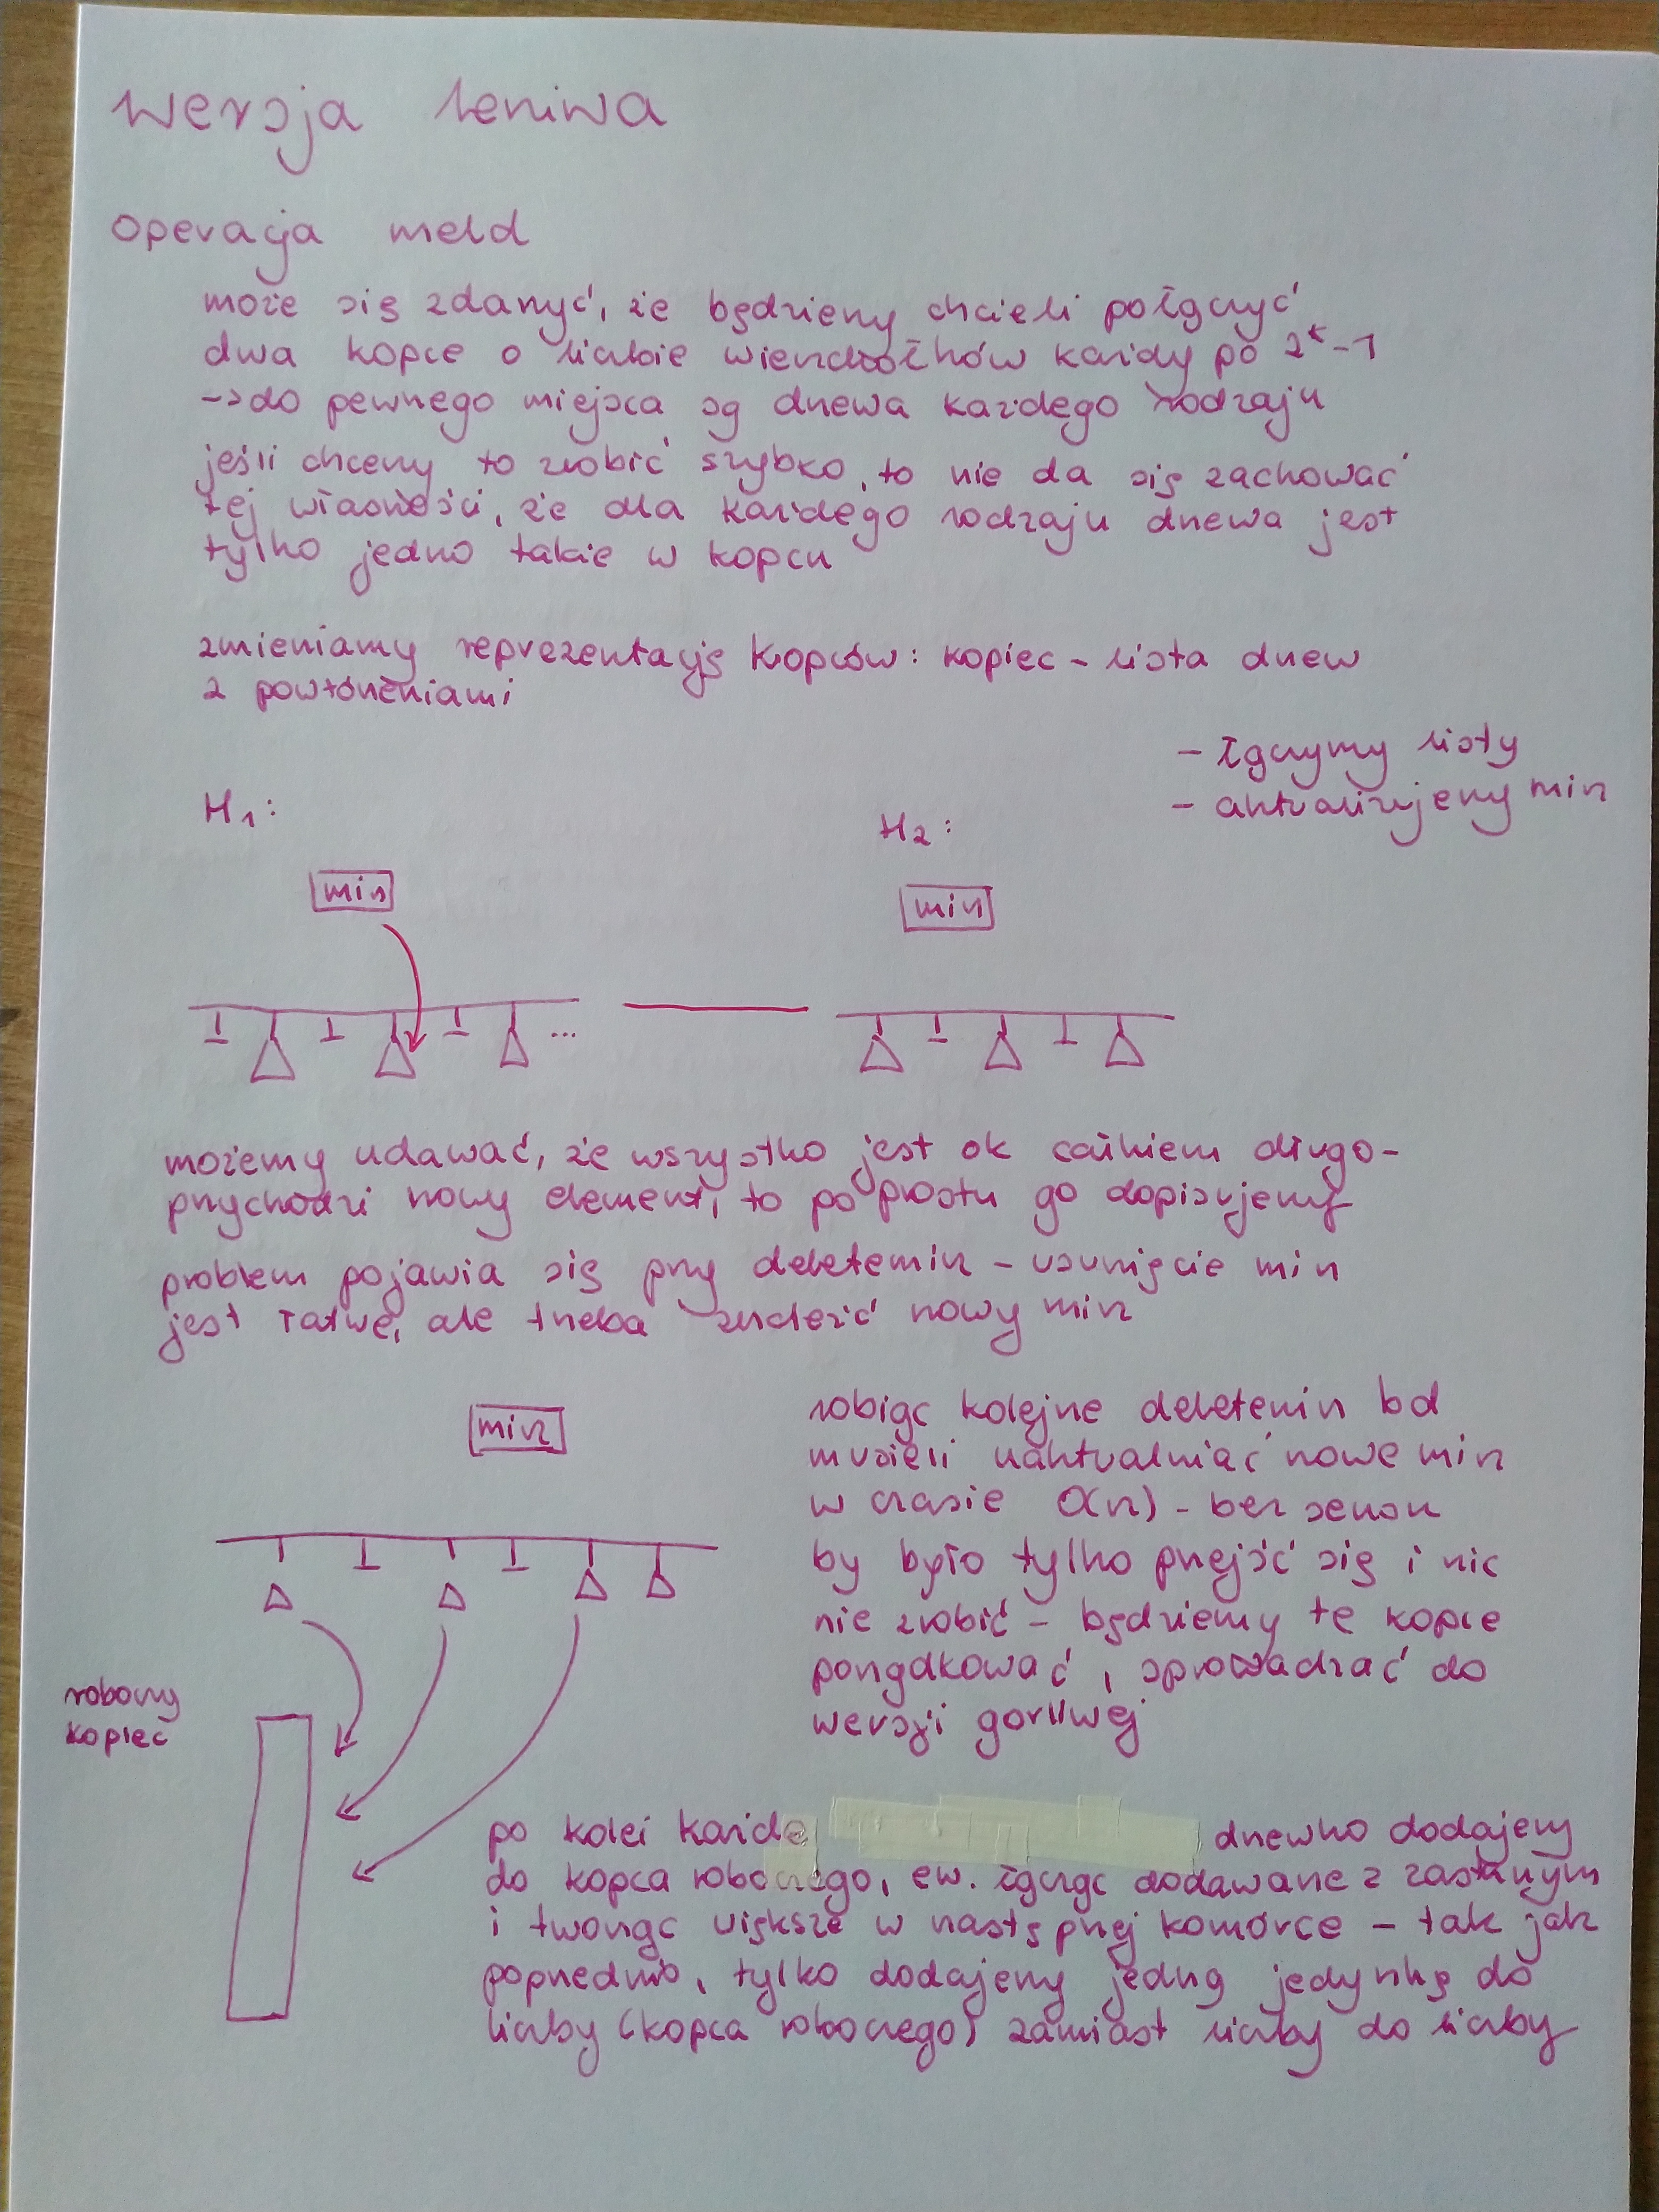 wersja leniwa
operacja meld
może się zdarzyć, że będziemy chcieli połączyć
dwa kopce o liczbie wierzchołków każdy po 2^k-1
->do pewnego miejsca są drzewa każdego rodzaju
jeśli chcemy to zrobić szybko, to nie da się zachować
tej własności, że dla każdego rodzaju drzewa jest
tylko jedno takie w kopcu
zmieniamy reprezentację kopców: kopiec - lista drzew
z powtórzeniami
- łączymy listy
- aktualizujemy min
H1:
H2:
min
min
...
możemy udawać, że wszystko jest ok całkiem długo -
przychodzi nowy element, to po prostu go dopisujemy
problem pojawia się przy deletemin - usunięcie min
jest łatwe, ale trzeba znaleźć nowy min
min
robiąc kolejne deletemin bd
musieli uaktualniać nowe min
w czasie O(n) - bez sensu
by było tylko przejść się i nic
nie zrobić - będziemy te kopce
porządkować, sprowadzać do
wersji gorliwej
roboczy
kopiec
po kolei każde drzewko dodajemy
do kopca roboczego, ew. łącząc dodawane z zastanym
i tworząc większe w następnej komórce - tak jak
poprzednio, tylko dodajemy jedną jedynkę do
liczby (kopca roboczego) zamiast liczby do liczby